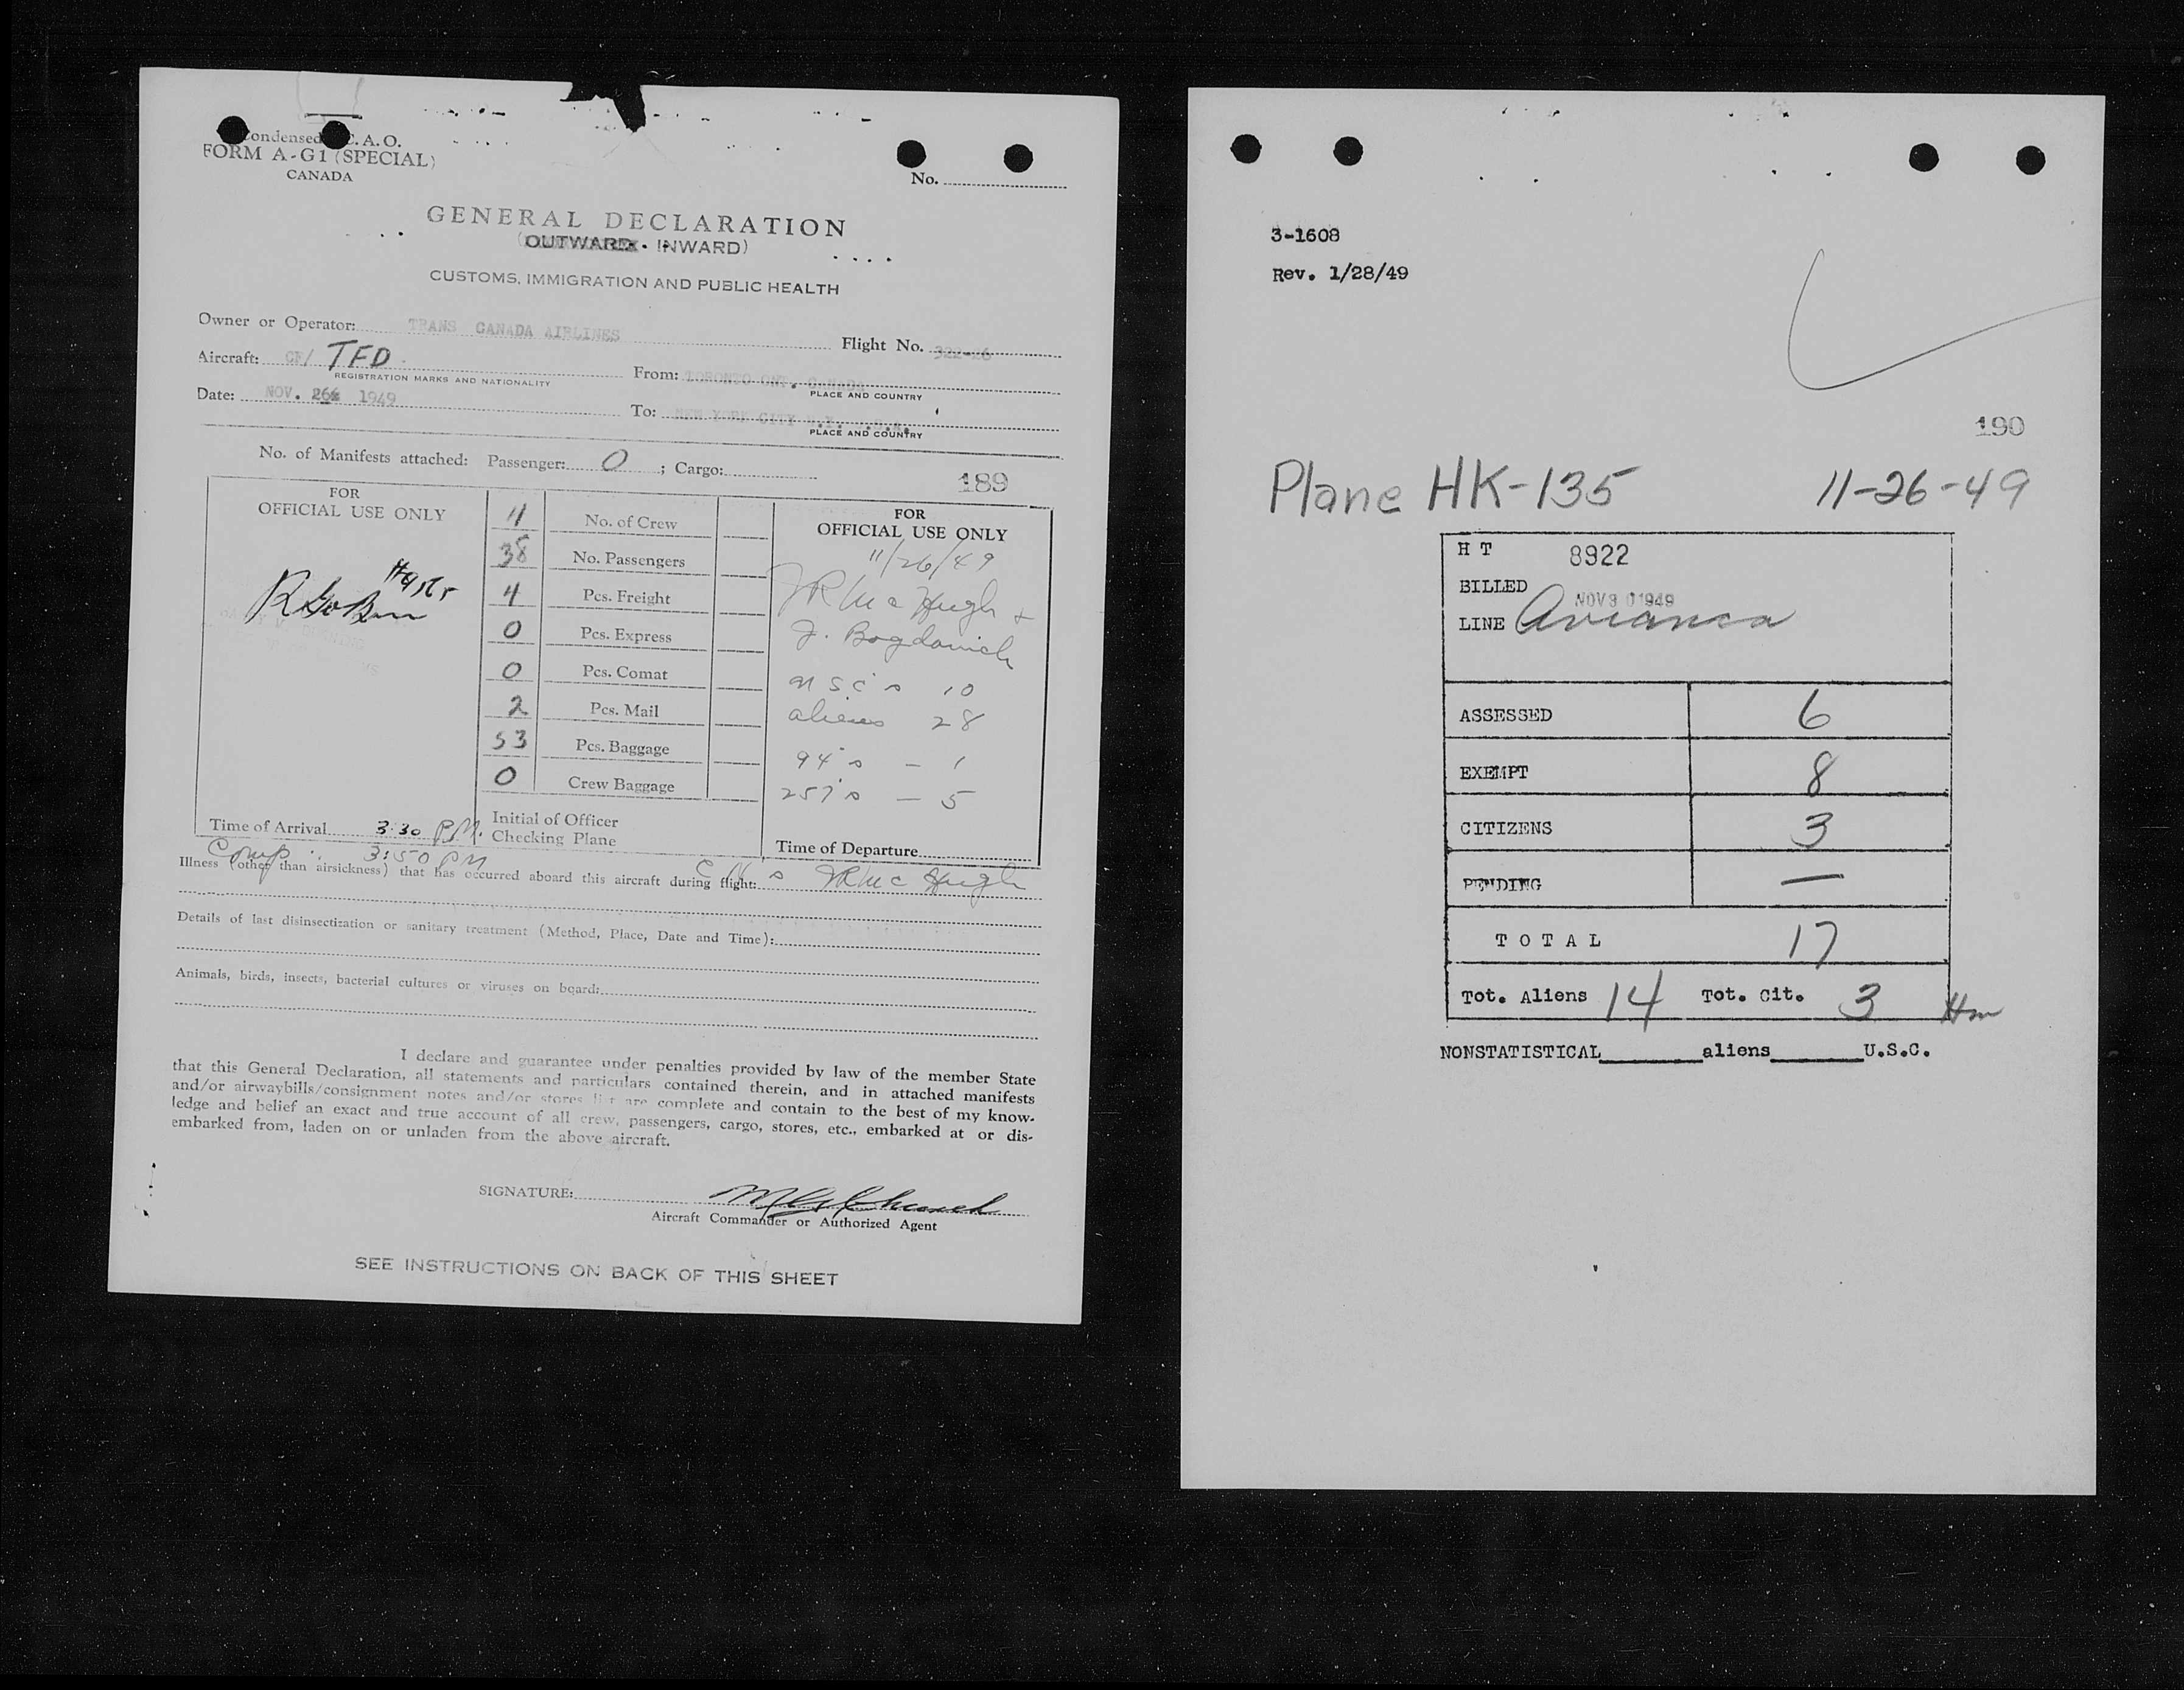 Condensed I.C.A.O.
FORM A-G1 (SPECIAL)
CANADA
No.
GENERAL DECLARATION
(OUTWARD - INWARD)
CUSTOMS, IMMIGRATION AND PUBLIC HEALTH
Owner or Operator: TRANS CANADA AIRLINES
Flight No. 322-26
Aircraft: CF/ TFD
REGISTRATION MARKS AND NATIONALITY
From: TORONTO ONT. CANADA
PLACE AND COUNTRY
Date: NOV. 26 1949
To: NEW YORK CITY N.Y.
PLACE AND COUNTRY
No. of Manifests attached: Passenger: 0 ; Cargo:
189
FOR
OFFICIAL USE ONLY
4 No. of Crew
38 No. Passengers
4 Pcs. Freight
0 Pcs. Express
0 Pcs. Comat
2 Pcs. Mail
53 Pcs. Baggage
0 Crew Baggage
Initial of Officer
Checking Plane
FOR
OFFICIAL USE ONLY
11/26/49
JR McHugh +
J. Bogdanich
10
aliens 28
94's - 1
257's - 5
Time of Arrival 3:30 P.M.
Time of Departure
Comp. 3:50 PM
Illness (other than airsickness) that has occurred aboard this aircraft during flight: JR McHugh
Details of last disinsectization or sanitary treatment (Method, Place, Date and Time):
Animals, birds, insects, bacterial cultures or viruses on board:
I declare and guarantee under penalties provided by law of the member State
that this General Declaration, all statements and particulars contained therein, and in attached manifests
and/or airwaybills/consignment notes and/or stores list are complete and contain to the best of my know-
ledge and belief an exact and true account of all crew, passengers, cargo, stores, etc., embarked at or dis-
embarked from, laden on or unladen from the above aircraft.
SIGNATURE:
Aircraft Commander or Authorized Agent
SEE INSTRUCTIONS ON BACK OF THIS SHEET
3-1608
Rev. 1/28/49
190
Plane HK-135 11-26-49
H T 8922
BILLED NOV 30 1949
LINE Avianca
ASSESSED 6
EXEMPT 8
CITIZENS 3
PENDING —
T O T A L 17
Tot. Aliens 14 Tot. Cit. 3 Hm
NONSTATISTICAL aliens U.S.C.